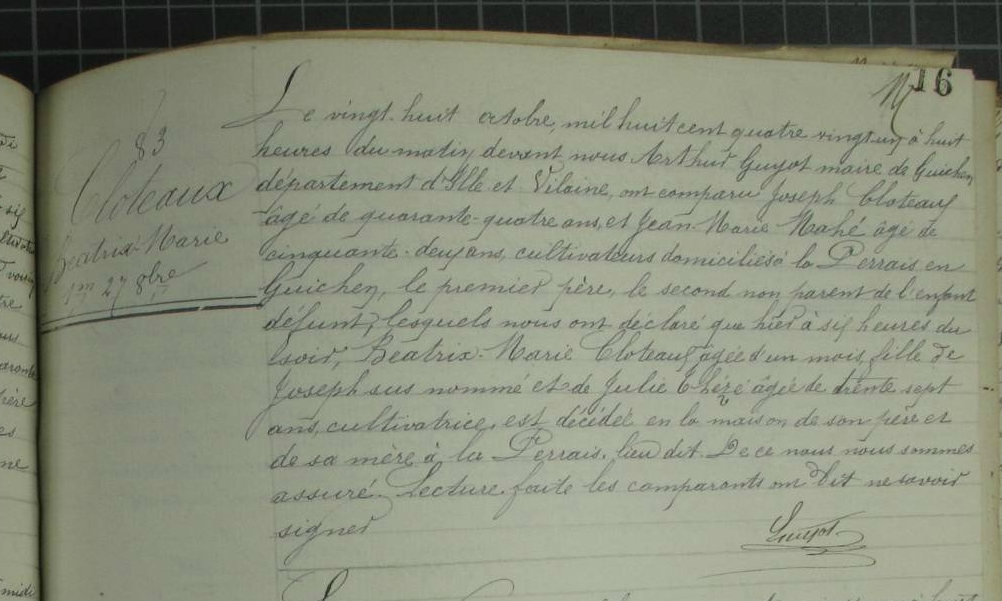 16
83
Cloteaux
Béatrix-Marie
1m 27 8bre
Le vingt-huit octobre, mil huit cent quatre vingt un, à huit
heures du matin, devant nous Arthur Guyot maire de Guichen,
département d'Ille et Vilaine, ont comparu Joseph Cloteaux
âgé de quarante-quatre ans, et Jean-Marie Mahé âgé de
cinquante-deux ans, cultivateurs domiciliés à la Perrais en
Guichen, le premier père, le second non parent de l'enfant
défunt, lesquels nous ont déclaré que hier à six heures du
soir, Béatrix-Marie Cloteaux, âgée d'un mois, fille de
Joseph sus nommé et de Julie Thézé âgée de trente sept
ans, cultivatrice, est décédée en la maison de son père et
de sa mère à la Perrais, lieu dit. De ce nous nous sommes
assuré. Lecture faite les comparants ont dit ne savoir
signer
Guyot